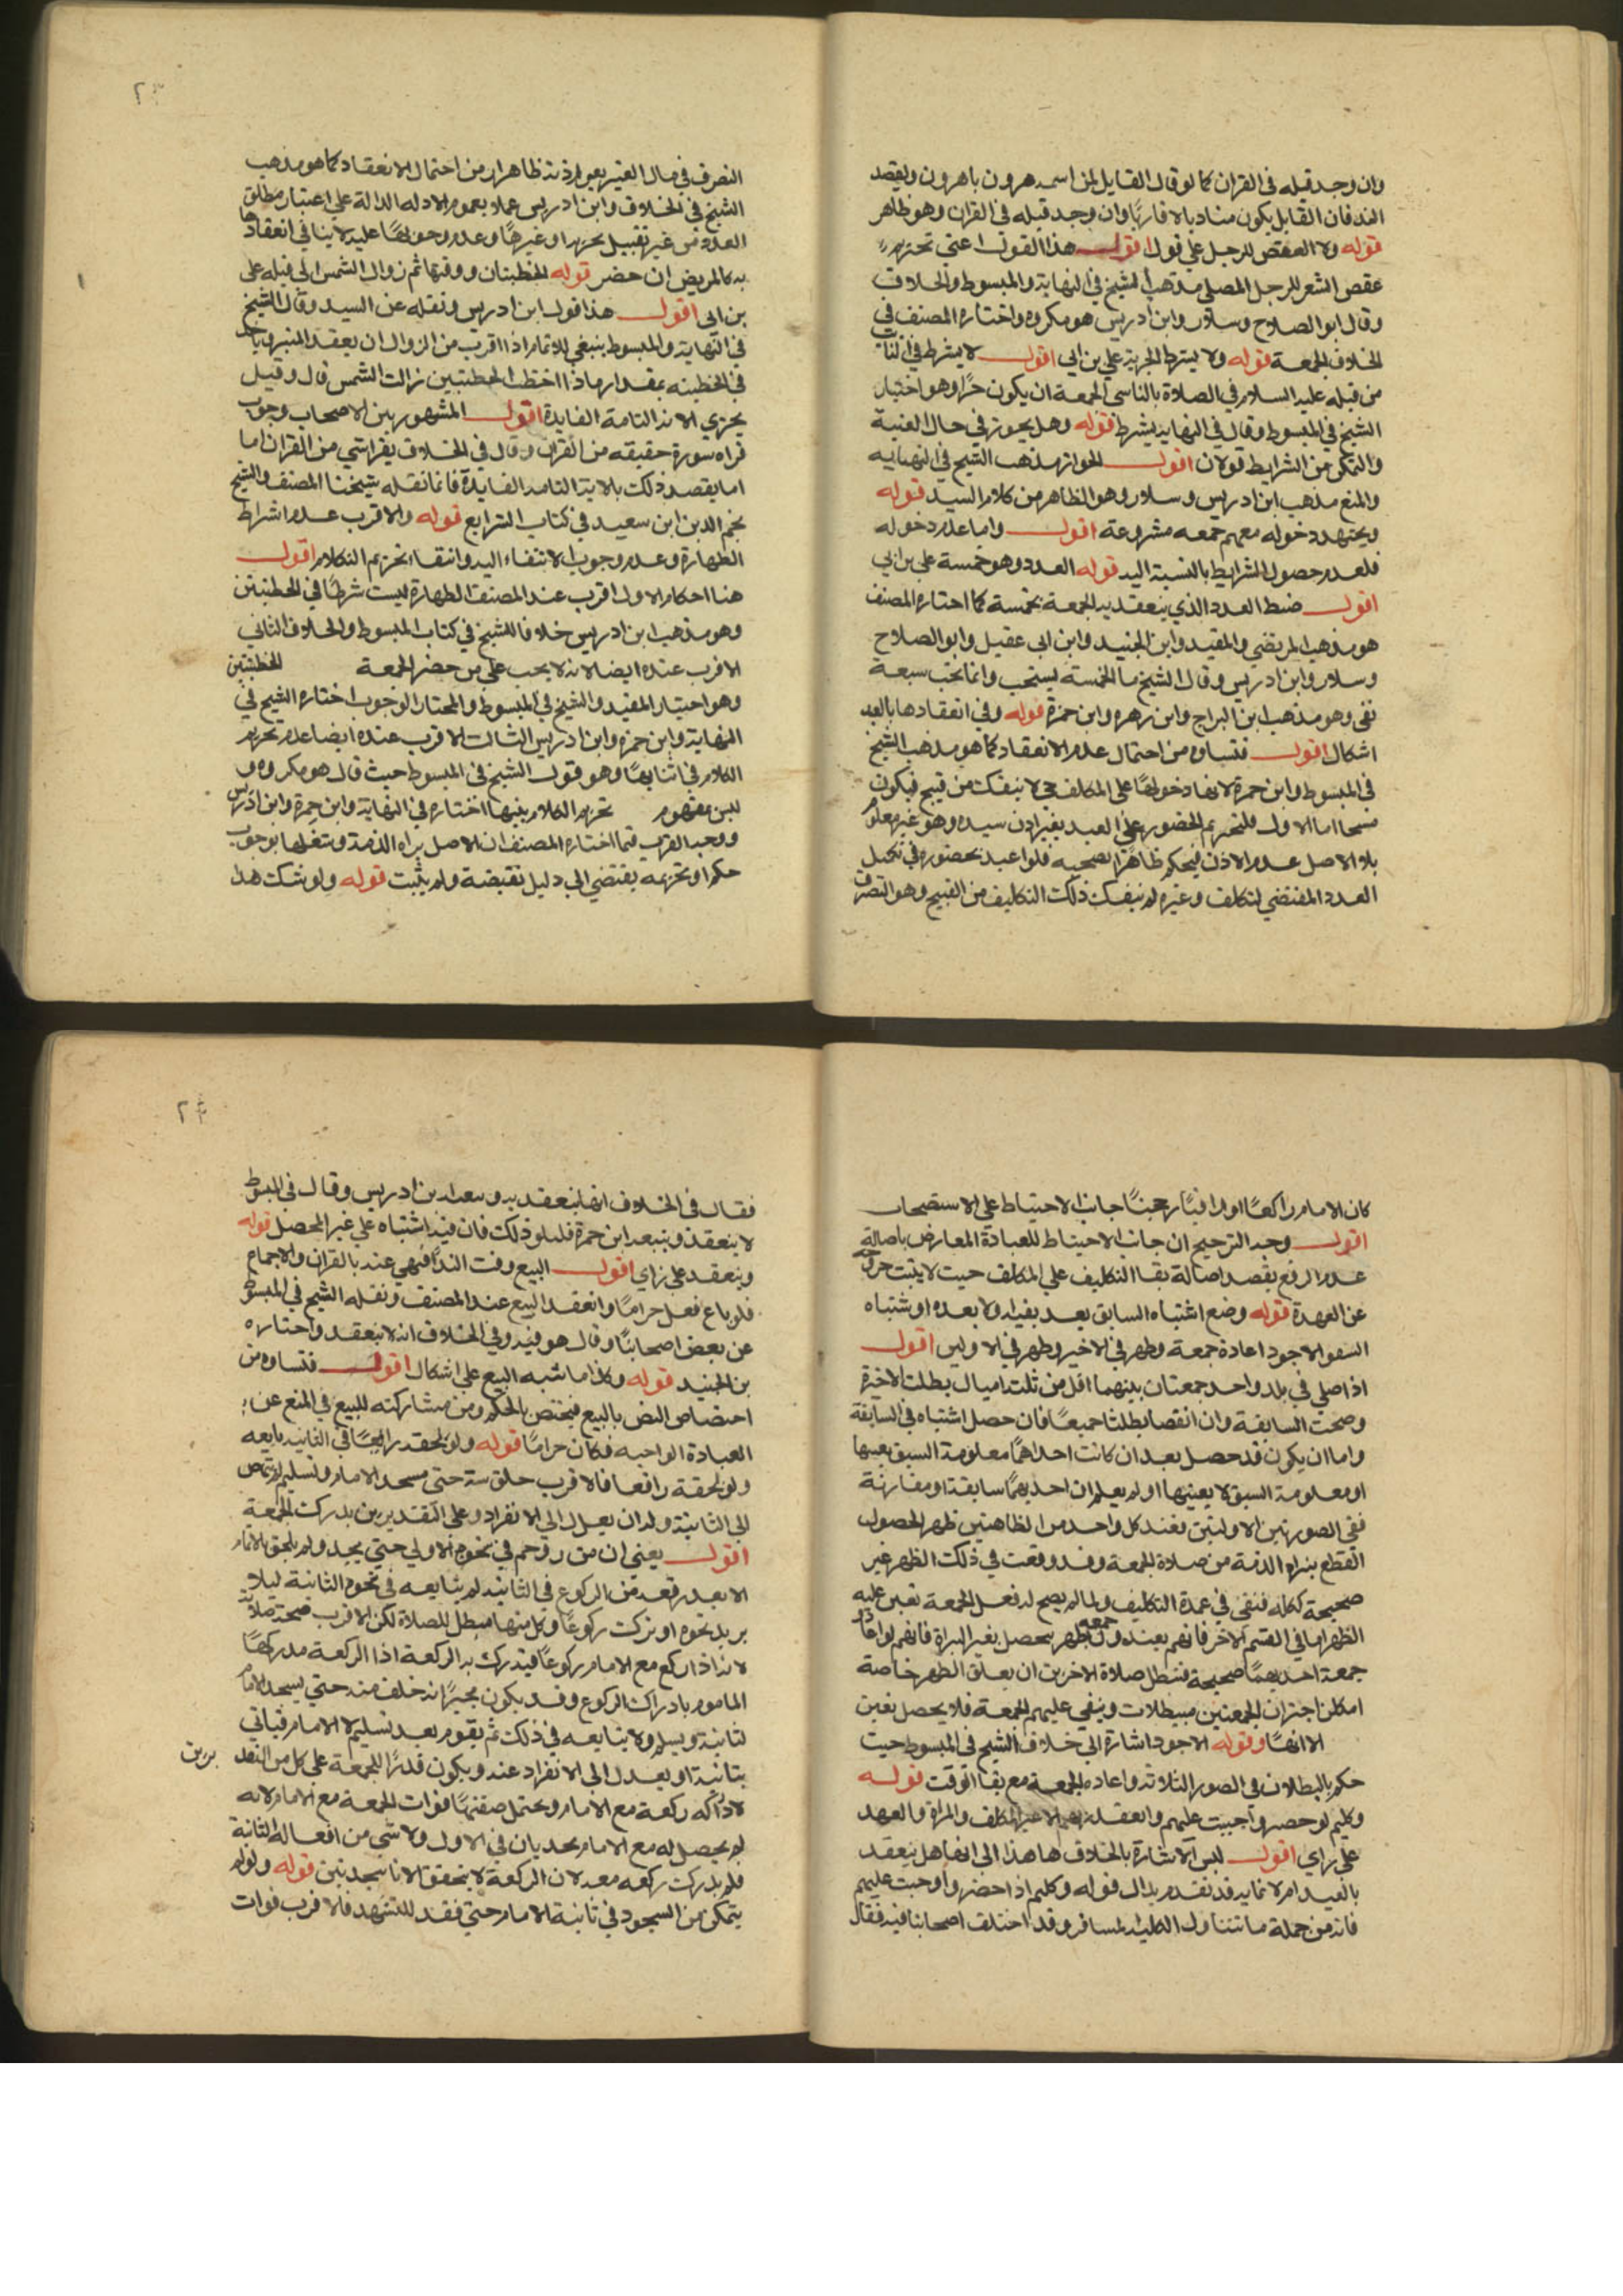 وان وجد قبله في القران كما لو قال القايل لمن اسمه هرون يا هرون ويقصد
الند فان القايل يكون مناديا لا قاريًا وان وجد قبله في القران وهو ظاهر
قوله ولا العقص للرجل على قول اقول هذا القول اعني تحريم
عقص الشعر للرجل المصلي مذهب الشيخ في النهاية والمبسوط والخلاف
وقال ابو الصلاح وسلار وابن ادريس هو مكروه واختاره المصنف في
الخلاف الجمعة قوله ولا يشترط الحرية على راي اقول لا يشترط في النائب
من قبله عليه السلام في الصلاة بالناس الجمعة ان يكون حرًا وهو اختيار
الشيخ في المبسوط وقال في النهايه يشرط قوله وهل يجوز في حال الغيبة
والتمكن من الشرايط قولان اقول الجواز مذهب الشيخ في النهايه
والمنع مذهب ابن ادريس وسلار وهو الظاهر من كلام السيد قوله
دخوله معهم جمعه مشروعة اقول واما عدم دخوله
فلعدم حصول الشرايط بالنسبة اليه قوله العدد وهو خمسة على راي
اقول ضبط العدد الذي ينعقد به الجمعة بخمسة كما اختاره المصنف
هو مذهب المرتضى والمفيد وابن الجنيد وابن ابي عقيل وابو الصلاح
وسلار وابن ادريس وقال الشيخ ما الخمسة يستحب وانما تجب سبعة
نفي وهو مذهب ابن البراج وابن زهره وابن حمزة قوله وفي انعقادها بالعبد
اشكال اقول فتساوه من احتمال عدم الانعقاد كما هو مذهب الشيخ
في المبسوط وابن حمزة لانها دخولها على المكلف لا ينفك من قبيح فيكون
اما الاول فلتحريم الحضور على العبد بغير اذن سيده وهو غير معلوم
بل الاصل عدم الاذن فيحكم ظاهرًا فلو اعتد بحضوره في تكميل
العدد المقتضي لتكلف وغيره لم ينفك ذلك التكليف من القبيح وهو التصرف
التصرف في مال الغير بغير اذنه ظاهرا ومن احتمال الانعقاد كما هو مذهب
الشيخ في الخلاف وابن ادريس عملا بعموم الادله الدالة على اعتبار مطلق
العدد من غير تقييد بحريه او غيرها وعدم وجوبها عليه لا ينافي انعقادها
به كالمريض ان حضر قوله الخطبتان ووقتهما ثم زوال الشمس الى قبله على
راي اقول هذا قول ابن ادريس ونقله عن السيد وقال الشيخ
في النهاية والمبسوط ينبغي للامام اذا اقرب من الزوال ان يصعد المنبر وياخذ
في الخطبه بمقدار ما اذا اخطب الخطبتين زالت الشمس قال وقيل
يجزي الاية التامة الفايدة اقول المشهور بين الاصحاب وجوب
قراه سورة خفيفه من القران وقال في الخلاف يقرا شي من القران اما
اما بقصد ذلك بالاية التامه الفايدة فانما نقله شيخنا المصنف والشيخ
نجم الدين ابن سعيد في كتاب الشرايع قوله والاقرب عدم اشراط
الطهارة وعدم وجوب الاصغاء اليه وانتفاء تحريم الكلام اقول
هنا احكام الاول اقرب عند المصنف الطهارة ليست شرطًا في الخطبتين
وهو مذهب ابن ادريس خلافا للشيخ في كتاب المبسوط والخلاف الثاني
الاقرب عنده ايضا لانه لا يجب على من حضر الجمعة الخطبتين
وهو اختيار المفيد والشيخ في المبسوط والمختار الوجوب اختاره الشيخ في
النهاية وابن حمزه وابن ادريس الثالث الاقرب عنده ايضا عدم تحريم
الكلام في اثنايها وهو قول الشيخ في المبسوط حيث قال هو مكروه و
ليس بمفهوم تحريم الكلام بينهما اختاره في النهاية وابن حمزة وابن ادريس
ووجه القرب فيما اختاره المصنف ان الاصل براه الذمة وشغلها بوجوب
حكم او تحريمه يقتضي الى دليل نقيضه ولم يثبت قوله ولو شك هل
كان الامام راكعًا او رافعًا رجحنا جانب الاحتياط على الاستصحاب
اقول وجه الترجيح ان جانب الاحتياط للعبادة المعارض باصالة
عدم الرفع بقصد اصالة بقا التكليف على المكلف حيث لا يثبت خروجه
عن العهدة قوله ومع اشتباه السابق بعد بعينه ولا بعده او شتباه
السبق الاجود اعادة جمعة وظهر في الاخير وظهر في الاولين اقول
اذا صلى في بلد واحد جمعتان بينهما اقل من ثلث اميال بطلت الاخيرة
وصحت السابقة وان اتفقا بطلتا جميعًا فان حصل اشتباه في السابقة
واما ان يكون قد حصل بعد ان كانت احداهما معلومة السبق بعينها
او معلومة السبق لا بعينها او لم يعلم ان احديهما سابقة او مقارنة
ففي الصورتين الاولتين فعند كل واحد من الطاهتين ظهر الحصول
القطع ببراه الذمة من صلاة الجمعة وقد وقعت في ذلك الظهر غير
صحيحة كمانه فتبقى في عهدة التكليف ولما لم يصح له فعل الجمعة تعين عليه
الظهر اما في القسم الاخر فانهم بعنده جمعه وظهر يحصل بغير البراة فانهم لو اعادوا
جمعة احديهما صحيحة فتبطل صلاة الاخرين ان يعلق الظهر خاصة
امكان اجتران الجمعتين مبطلات وينفي عليهم الجمعة فلا يحصل تعين
الا انهما وقوله الاجود اشارة الى خلاف الشيخ في المبسوط حيث
حكم بالبطلان في الصور الثلاثه واعاده الجمعة مع بقا الوقت قوله
وكلهم لو حضر واجبت عليهم وانعقدت بهم الا غير المكلف والمراة والعبد
على راي اقول ليس الاشارة بالخلاف هاهنا الى انها هل ينعقد
بالعبد ام لا فانه قد تقدم بل الى قوله وكلهم اذا حضروا وجبت عليهم
فانه من جملة ما تتناول الكليه المسافر وقد اختلف اصحابنا فيه فقال
فقال في الخلاف انها ينعقد به وتبعه ابن ادريس وقال في المبسوط
لا ينعقد وتبعه ابن حمزة فلذلك فان فيه اشتباه على غير المحصل قوله
وينعقد على راي اقول البيع وقت النداء منهي عنه بالقران والاجماع
فلو باع فعل حرامًا وانعقد البيع عند المصنف ونقله الشيخ في المبسوط
عن بعض اصحابنا وقال هو فيه وفي الخلاف انه لا ينعقد واختاره
بن الجنيد قوله وكذا ما شبه البيع على اشكال اقول فتساوه من
اختصاص النص بالبيع فيختص بالحكم ومن مشاركته للبيع في المنع عن
العبادة الواجبه فكان حرامًا قوله ولو لحقه راكعًا في الثانيه تابعه
ولو لحقة رافعا فالاقرب جلوسه حتى يسجد الامام وتسليم ثم ينهض
الى الثانية وله ان يعدل الى الانفراد وعلى التقديرين يدرك الجمعة
اقول يعني ان من زوحم في سجود الاولى حتى يسجد ولم يلحق بالامام
الا بعد رفعه من الركوع في الثانيه لم يتابعه في سجود الثانية ليلا
يزيد سجوده او ترك ركوعًا وكل منهما مبطل للصلاة لكن الاقرب صحة صلاته
لانه اذا ركع مع الامام ركوعًا فيدرك به الركعة اذا الركعة مدركها
الماموم بادراك الركوع وقد يكون مخيرًا انه خلف منه حتى يسجد الامام
لثانية ويسلم ولا يتابعه في ذلك ثم يقوم بعد تسليم الامام فياتي
بثانية او يعدل الى الانفراد عنه ويكون قدرا للجمعة على كل من التقد يرين
لادراكه ركعة مع الامام ويحتمل ضعيفًا فوات الجمعة مع الامام لانه
لم يحصل له مع الامام سجدتان في الاول ولا شي من افعاله الثانية
فلم يدرك ركعه معه لان الركعة لا يتحقق الا بالسجدتين قوله ولو لم
يتمكن من السجود في ثانية الامام حتى فقد للتشهد فالاقرب فوات